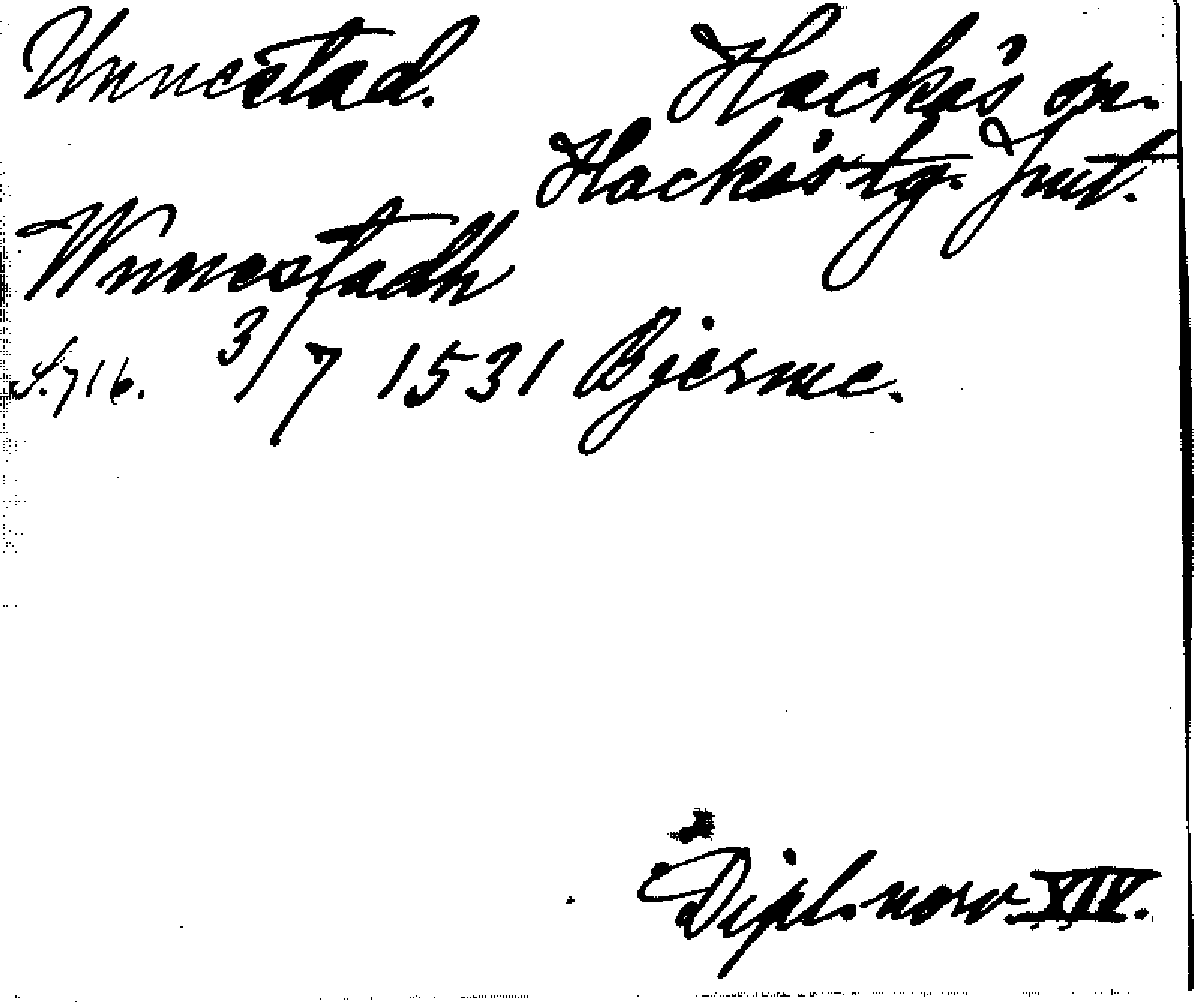 Unnestad. Hackås sn.
Hackås tg. Jmt.
Wnnestadh
S. 716. 3/7 1531 Bjerme.
Dipl. norv XIV.